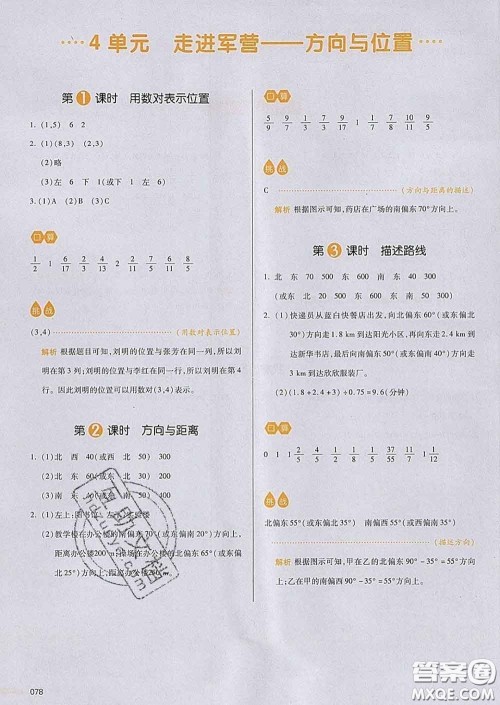 4 单元 走进军营——方向与位置
第1课时 用数对表示位置
1. (1,5) 6 2
2. (1)(8,3) (2,4)
(2)略
(3)左 6 下 1(或下 1 左 6)
3. (1)A (2)A
口算
1/2 1 6/17 3/13 1 2 2/11 7/6 8/5 6/11
挑战
(3,4) (用数对表示位置)
解析 根据题目可知,刘明的位置与张芳在同一列,所以刘
明在第3列;刘明的位置与李红在同一行,所以刘明在
第4行。因此刘明的位置可以用数对(3,4)表示。
第2课时 方向与距离
1. (1)北 西 40(或西 北 50) 300
(2)北 东 60(或东 北 30) 200
(3)南 东 40(或东 南 50) 400
2. (1)左上:图书馆
(2)教学楼在办公楼的南偏东70°(或东偏南20°)方向上,
距离办公楼200 m;操场在办公楼的北偏东65°(或东偏
北25°)方向上,距离办公楼
口算
5/9 9/7 1/3 1 1/7 1/8 7/10 8/11 9/5
挑战
C (方向与距离的描述)
解析 根据图示可知,药店在广场的南偏东70°方向上。
第3课时 描述路线
1. 北 东 70 500 东 600 南 40 300
(或东 北 20 500 东 600 东 南 50 300)
2. (1)快递员从蓝白快餐店出发,向北偏东60°(或东偏北
30°)方向走1.8 km到达阳光小区,再向东走2.4 km到
达新华书店,最后向南偏东60°(或东偏南30°)方向走
3 km到达欣欣服装厂。
(2)(1.8+2.4+3)÷0.75=9.6(分钟)
口算
0 1 1 4/7 1/5 1/2 1/4 38/55 37/77 11/10 0 1/12
挑战
北偏东55°(或东偏北35°) 南偏西55°(或西偏南35°)
(描述方向)
解析 根据图示可知,甲在乙的北偏东90°-35°=55°方向
上;乙在甲的南偏西90°-35°=55°方向上。
078
答案圈
MXQE.COM